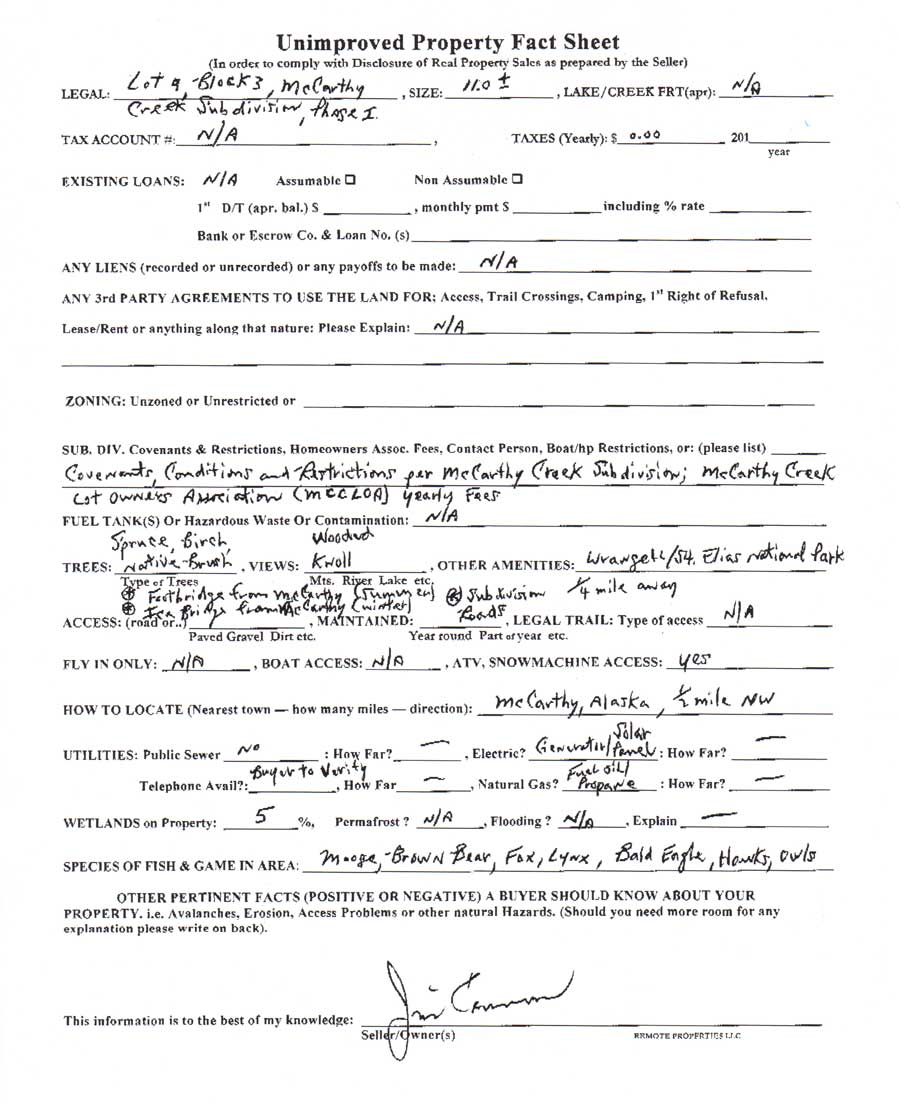 Unimproved Property Fact Sheet
(In order to comply with Disclosure of Real Property Sales as prepared by the Seller)
LEGAL: Lot 9, Block 3, McCarthy , SIZE: 11.0 ± , LAKE/CREEK FRT(apr): N/A
Creek Subdivision, Phase I.
TAX ACCOUNT #: N/A , TAXES (Yearly): $ 0.00 201
year
EXISTING LOANS: N/A Assumable ☐ Non Assumable ☐
1st D/T (apr. bal.) $ , monthly pmt $ including % rate
Bank or Escrow Co. & Loan No. (s)
ANY LIENS (recorded or unrecorded) or any payoffs to be made: N/A
ANY 3rd PARTY AGREEMENTS TO USE THE LAND FOR; Access, Trail Crossings, Camping, 1st Right of Refusal,
Lease/Rent or anything along that nature: Please Explain: N/A
ZONING: Unzoned or Unrestricted or
SUB. DIV. Covenants & Restrictions, Homeowners Assoc. Fees, Contact Person, Boat/hp Restrictions, or: (please list)
Covenants, Conditions and Restrictions per McCarthy Creek Subdivision; McCarthy Creek
Lot Owners Association (MCCLOA) yearly Fees
FUEL TANK(S) Or Hazardous Waste Or Contamination: N/A
Spruce, Birch Wooded
TREES: Native-Brush , VIEWS: Knoll , OTHER AMENITIES: Wrangell/St. Elias National Park
Type or Trees Mts. River Lake etc. 1/4 mile away
Footbridge from McCarthy (Summer) Subdivision
Ice Bridge from McCarthy (winter) Roads
ACCESS: (road or..) , MAINTAINED: , LEGAL TRAIL: Type of access N/A
Paved Gravel Dirt etc. Year round Part of year etc.
FLY IN ONLY: N/A , BOAT ACCESS: N/A , ATV, SNOWMACHINE ACCESS: yes
HOW TO LOCATE (Nearest town — how many miles — direction): McCarthy, Alaska, 1/2 mile NW
Solar
UTILITIES: Public Sewer No : How Far? — , Electric? Generator/Panel : How Far? —
Buyer to Verify Fuel oil/
Telephone Avail?: , How Far — , Natural Gas? Propane : How Far? —
WETLANDS on Property: 5 %, Permafrost ? N/A , Flooding ? N/A , Explain —
SPECIES OF FISH & GAME IN AREA: Moose, Brown Bear, Fox, Lynx, Bald Eagle, Hawks, Owls
OTHER PERTINENT FACTS (POSITIVE OR NEGATIVE) A BUYER SHOULD KNOW ABOUT YOUR
PROPERTY. i.e. Avalanches, Erosion, Access Problems or other natural Hazards. (Should you need more room for any
explanation please write on back).
This information is to the best of my knowledge: Jim
Seller/Owner(s) REMOTE PROPERTIES LLC